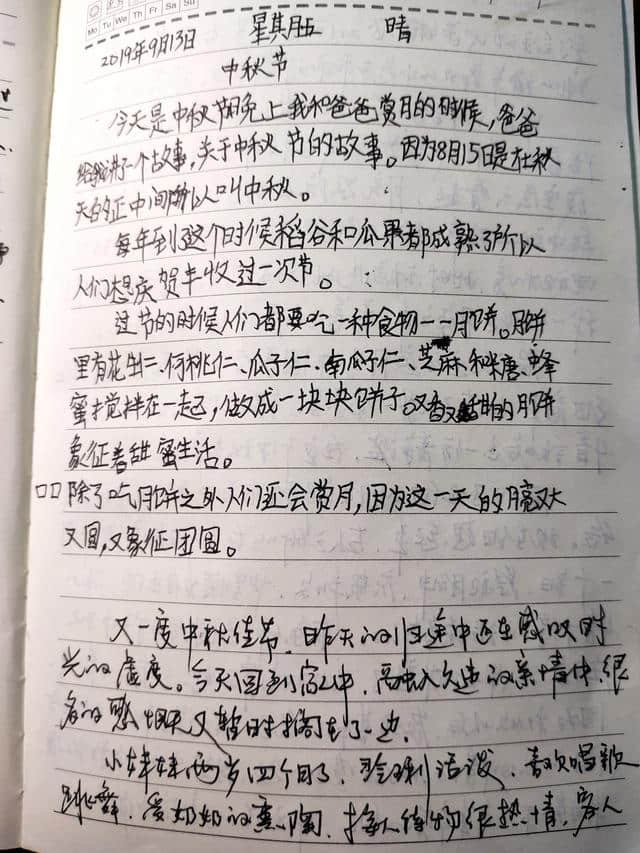 Mo Tu We Th Fr Sa Su
2019年9月13日 星期五 晴
中秋节
今天是中秋节晚上我和爸爸赏月的时候,爸爸
给我讲了一个故事,关于中秋节的故事。因为8月15日是在秋
天的正中间所以叫中秋。
每年到这个时候稻谷和瓜果都成熟了所以
人们想庆贺丰收过一次节。
过节的时候人们都要吃一种食物——月饼。月饼
里有花生仁、何桃仁、瓜子仁、南瓜子仁、芝麻和糖、蜂
蜜搅拌在一起,做成一块块饼子。又香又甜的月饼
象征着甜蜜生活。
除了吃月饼之外人们还会赏月,因为这一天的月亮又大
又圆,又象征团圆。
又一度中秋佳节,昨天的归途中还在感叹时
光的虚度。今天回到家中,融入久违的亲情中,很
多的烦恼又暂时搁在了一边。
小妹妹两岁四个月了,伶俐活泼,喜欢唱歌
跳舞,受奶奶的熏陶,接人待物很热情,客人